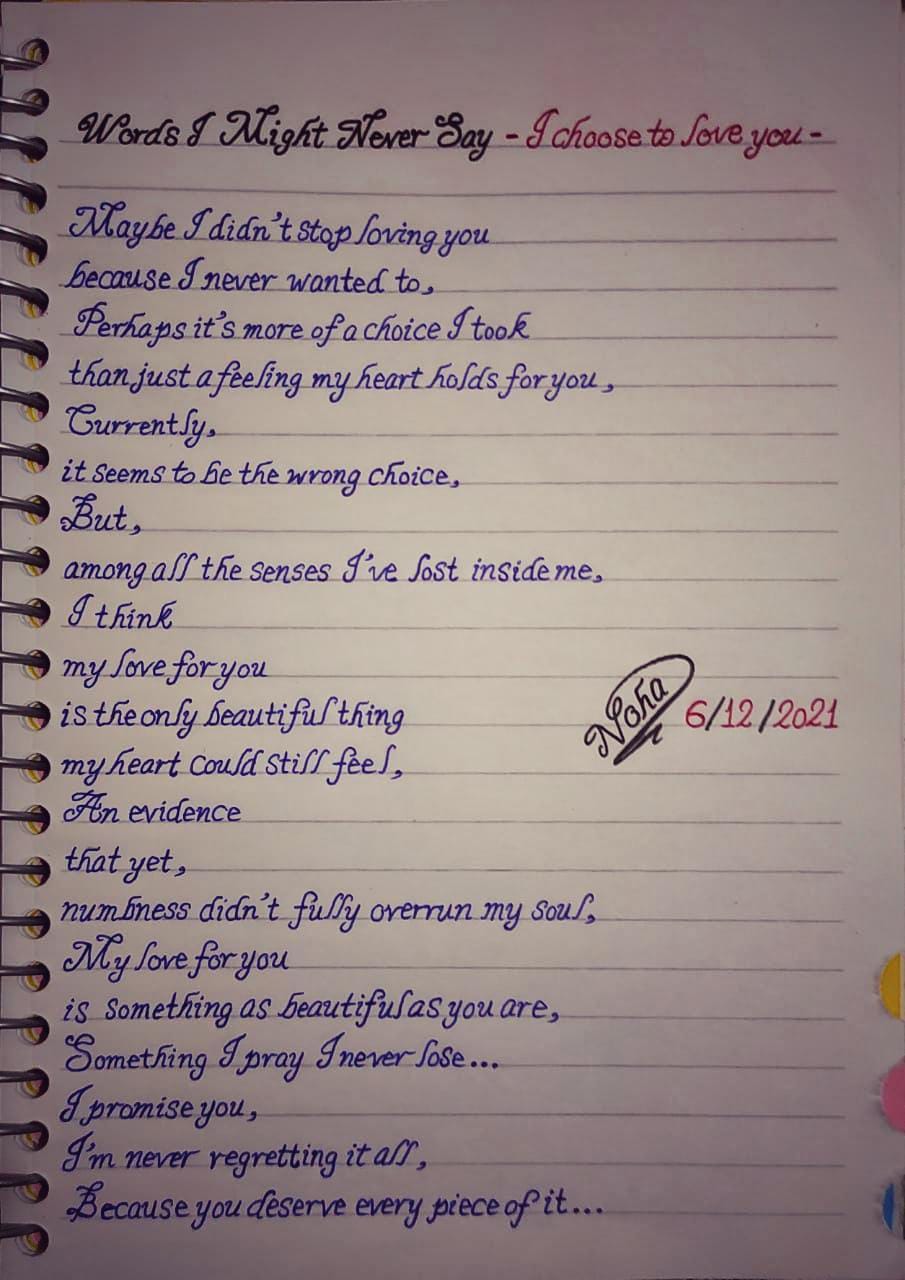 Words I Might Never Say - I choose to love you -
Maybe I didn't stop loving you
because I never wanted to,
Perhaps it's more of a choice I took
than just a feeling my heart holds for you,
Currently,
it seems to be the wrong choice,
But,
among all the senses I've lost inside me,
I think
my love for you
is the only beautiful thing
Noha 6/12/2021
my heart could still feel,
An evidence
that yet,
numbness didn't fully overrun my soul,
My love for you
is something as beautiful as you are,
Something I pray I never lose...
I promise you,
I'm never regretting it all,
Because you deserve every piece of it...